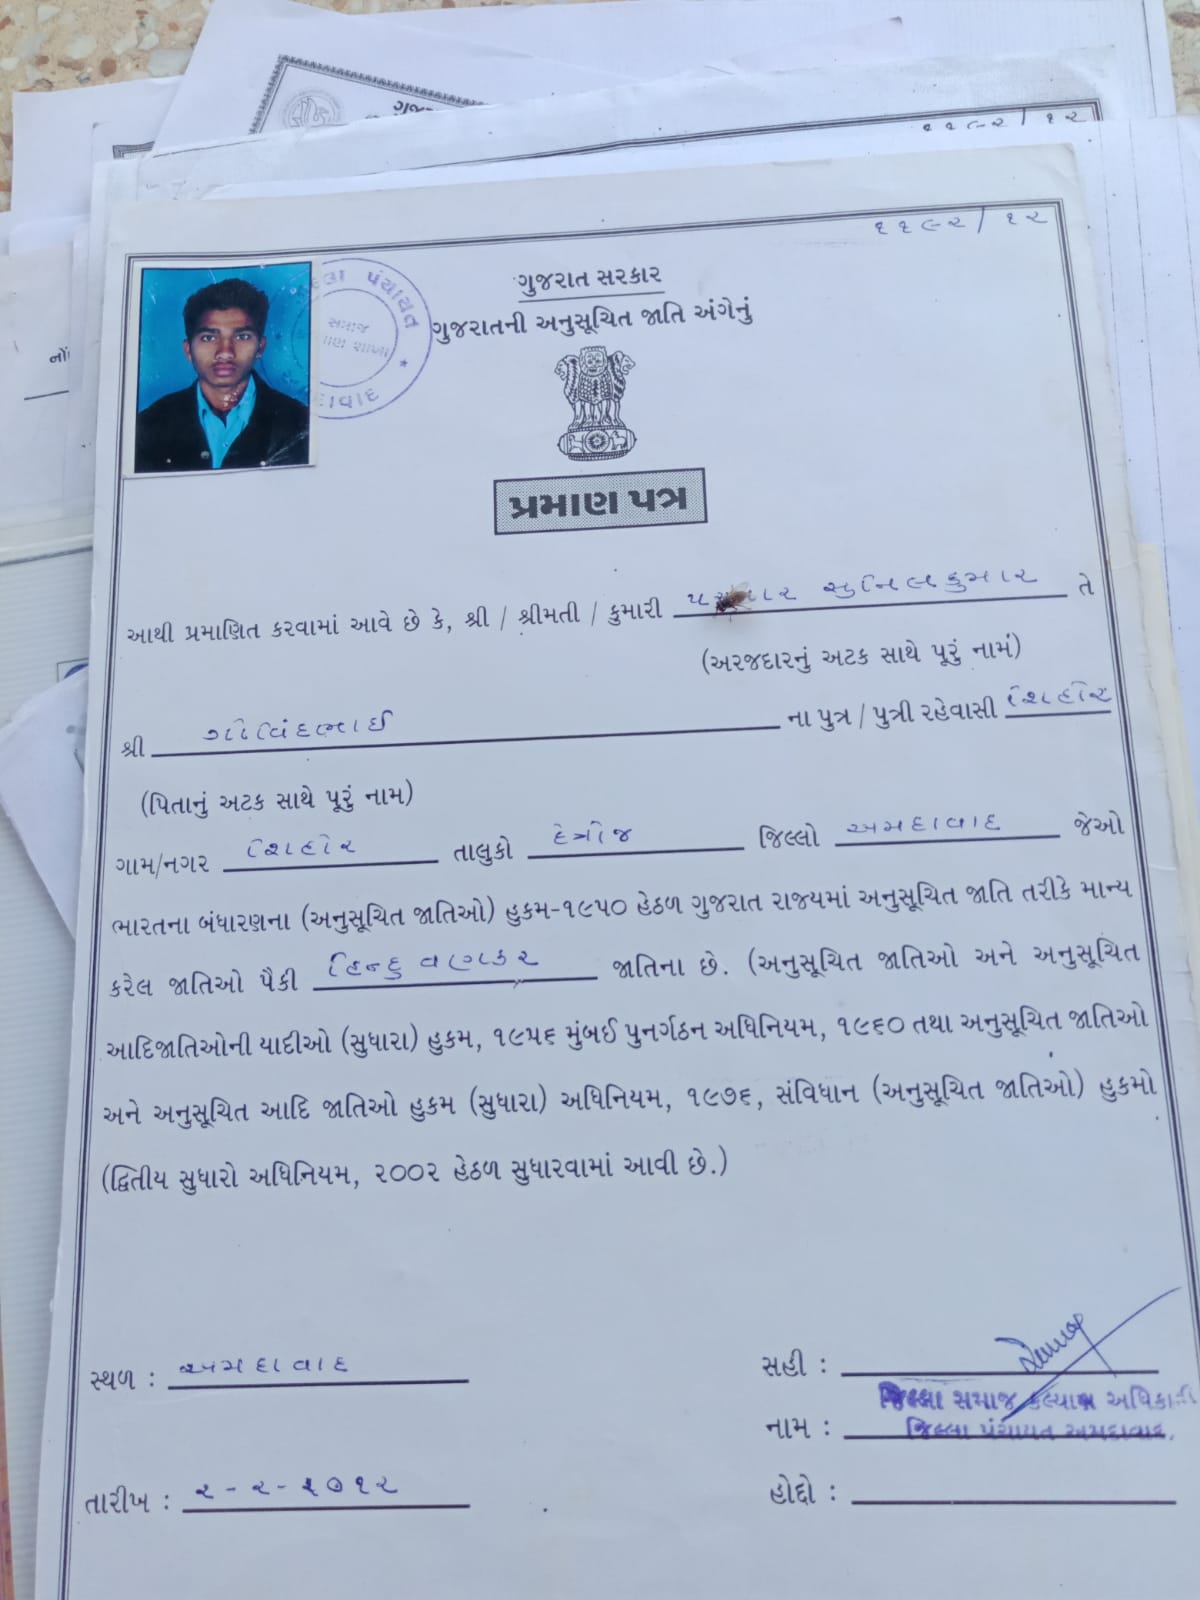 ગુજ
૧૧૯૨/૧૨
૧૧૯૨/૧૨
પંચાયત
સમાજ
શાખા
ગુજરાત સરકાર
ગુજરાતની અનુસૂચિત જાતિ અંગેનું
પ્રમાણ પત્ર
આથી પ્રમાણિત કરવામાં આવે છે કે, શ્રી / શ્રીમતી / કુમારી સુનિલકુમાર તે
(અરજદારનું અટક સાથે પૂરું નામ)
શ્રી ગોવિંદભાઈ ના પુત્ર / પુત્રી રહેવાસી શિહોર
(પિતાનું અટક સાથે પૂરું નામ)
ગામ/નગર શિહોર તાલુકો દેત્રોજ જિલ્લો અમદાવાદ જેઓ
ભારતના બંધારણના (અનુસૂચિત જાતિઓ) હુકમ-૧૯૫૦ હેઠળ ગુજરાત રાજ્યમાં અનુસૂચિત જાતિ તરીકે માન્ય
કરેલ જાતિઓ પૈકી હિન્દુ વણકર જાતિના છે. (અનુસૂચિત જાતિઓ અને અનુસૂચિત
આદિજાતિઓની યાદીઓ (સુધારા) હુકમ, ૧૯૫૬ મુંબઈ પુનર્ગઠન અધિનિયમ, ૧૯૬૦ તથા અનુસૂચિત જાતિઓ
અને અનુસૂચિત આદિ જાતિઓ હુકમ (સુધારા) અધિનિયમ, ૧૯૭૬, સંવિધાન (અનુસૂચિત જાતિઓ) હુકમો
(દ્વિતીય સુધારો અધિનિયમ, ૨૦૦૨ હેઠળ સુધારવામાં આવી છે.)
સ્થળ : અમદાવાદ
સહી :
જિલ્લા સમાજ કલ્યાણ અધિકારી
નામ : જિલ્લા પંચાયત અમદાવાદ.
તારીખ : ૨-૨-૨૦૧૨
હોદ્દો :